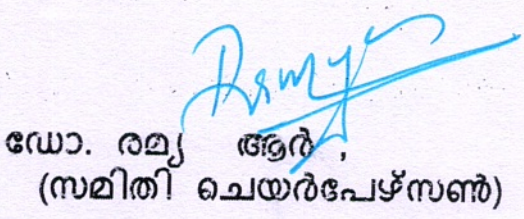 Ramya
ഡോ. രമ്യ ആർ ,
(സമിതി ചെയർപേഴ്സൺ)